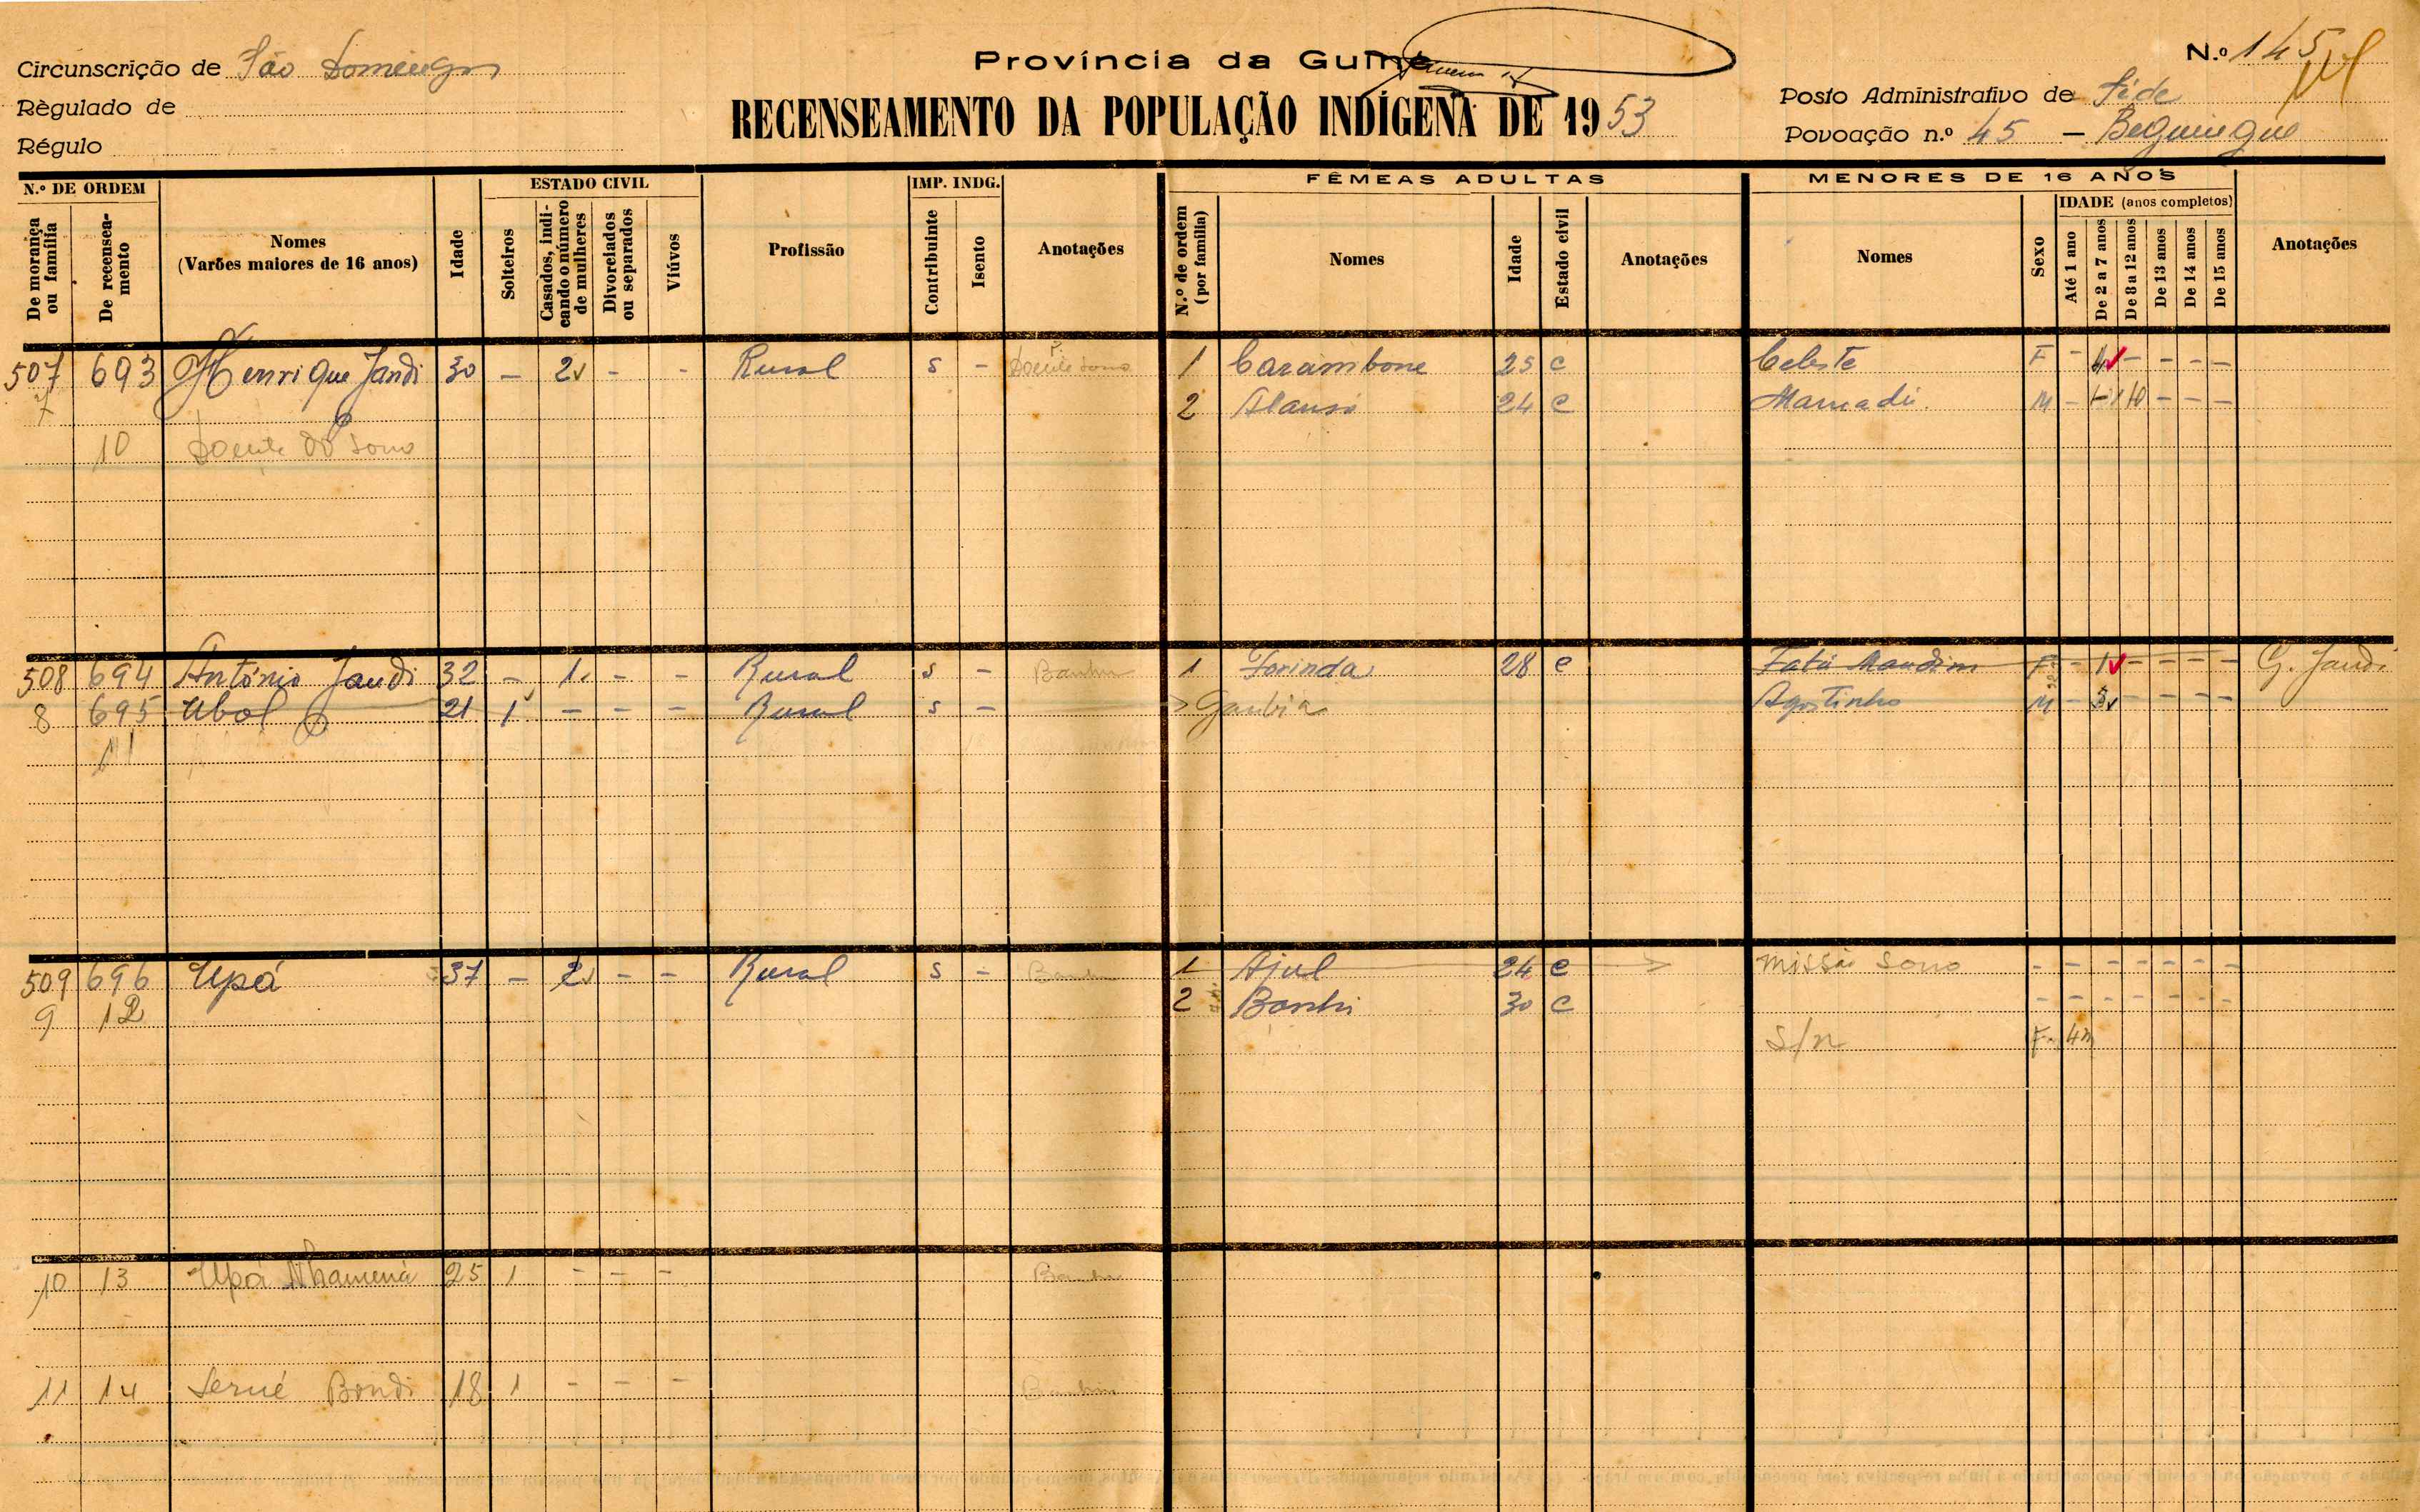 Província da Guiné
Circunscrição de São Domingos
Règulado de
Régulo
RECENSEAMENTO DA POPULAÇÃO INDÍGENA DE 1953
N.º 145
Posto Administrativo de Séde
Povoação n.º 45 —
N.º DE ORDEM
De morança ou família
De recensea-mento
Nomes
(Varões maiores de 16 anos)
Idade
ESTADO CIVIL
Solteiros
Casados, indi-cando o número de mulheres
Divorciados ou separados
Viúvos
Profissão
IMP. INDG.
Contribuinte
Isento
Anotações
FÊMEAS ADULTAS
N.º de ordem (por família)
Nomes
Idade
Estado civil
Anotações
MENORES DE 16 ANOS
Nomes
Sexo
IDADE (anos completos)
Até 1 ano
De 2 a 7 anos
De 8 a 12 anos
De 13 anos
De 14 anos
De 15 anos
Anotações
507 693 Henrique Jandi 30 - 2 - - Rural s - Doente sono 1 Carambone 25 c Celeste F - 4 - - - -
7 2 Alansó 24 c Mamadú M - - 10 - - -
10 Doente do sono
508 694 António Jandi 32 - 1 - - Rural s - Banhu 1 Forinda 28 c Fatú Mandim F - 1 - - - - G. Jandi
8 695 Ubol 21 1 - - - Rural s - > Gambia Agostinho M - 3 - - - -
11
509 696 Upá 37 - 2 - - Rural s - Banhu 1 Ajul 24 c > Missão sono - - - - - - -
9 12 2 Banhi 30 c - - - - - - -
S/n F. 4m
10 13 Upá Nhamená 25 1 - - - Banhu
11 14 Serné Bondi 18 1 - - - Banhu